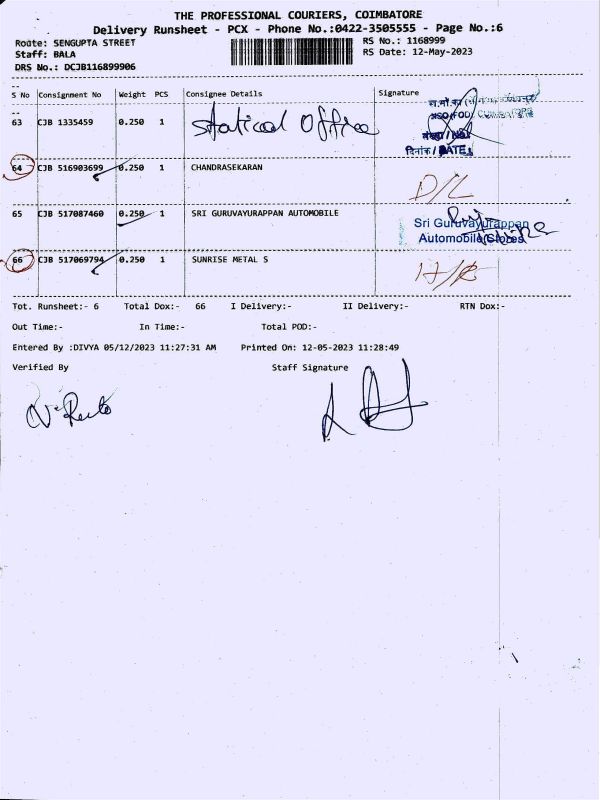 THE PROFESSIONAL COURIERS, COIMBATORE
Delivery Runsheet - PCX - Phone No.:0422-3505555 - Page No.:6
Route: SENGUPTA STREET
RS No.: 1168999
Staff: BALA
RS Date: 12-May-2023
DRS No.: DCJB116899906
S No Consignment No Weight PCS Consignee Details Signature
63 CJB 1335459 0.250 1 Statical Office
दिनांक / DATE
64 CJB 516903699 0.250 1 CHANDRASEKARAN D/L
65 CJB 517087460 0.250 1 SRI GURUVAYURAPPAN AUTOMOBILE
Sri Guruvayurappan
Automobile Stores
66 CJB 517069794 0.250 1 SUNRISE METAL S
Tot. Runsheet:- 6 Total Dox:- 66 I Delivery:- II Delivery:- RTN Dox:-
Out Time:- In Time:- Total POD:-
Entered By :DIVYA 05/12/2023 11:27:31 AM Printed On: 12-05-2023 11:28:49
Verified By Staff Signature